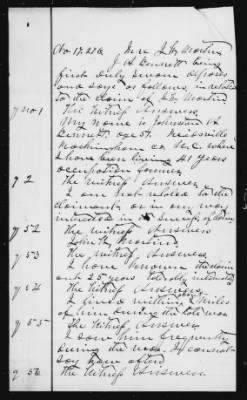 No 17.286 In re J. W. Martin
J. A. Bennett being
first duly sworn deposes
and says as follows in relation
to the claim of
The Witness Answers
q No 1 My name is Johnston A
Bennett. age 54. Reidsville
Rockingham co N.C. where
I have been living 41 years
occupation farmer
q 2 The Witness Answers
I am not related to the
claimant or in any way
interested in
q 52 The Witness Answers
John W. Martin.
q 53 The Witness Answers
I have known the claim
ant 25 years
q 54 The Witness Answers
I lived within miles
of him during the late war
q 55 The Witness Answers
I saw him frequently
during the war. I cannot
say how often
q 56 The Witness Answers